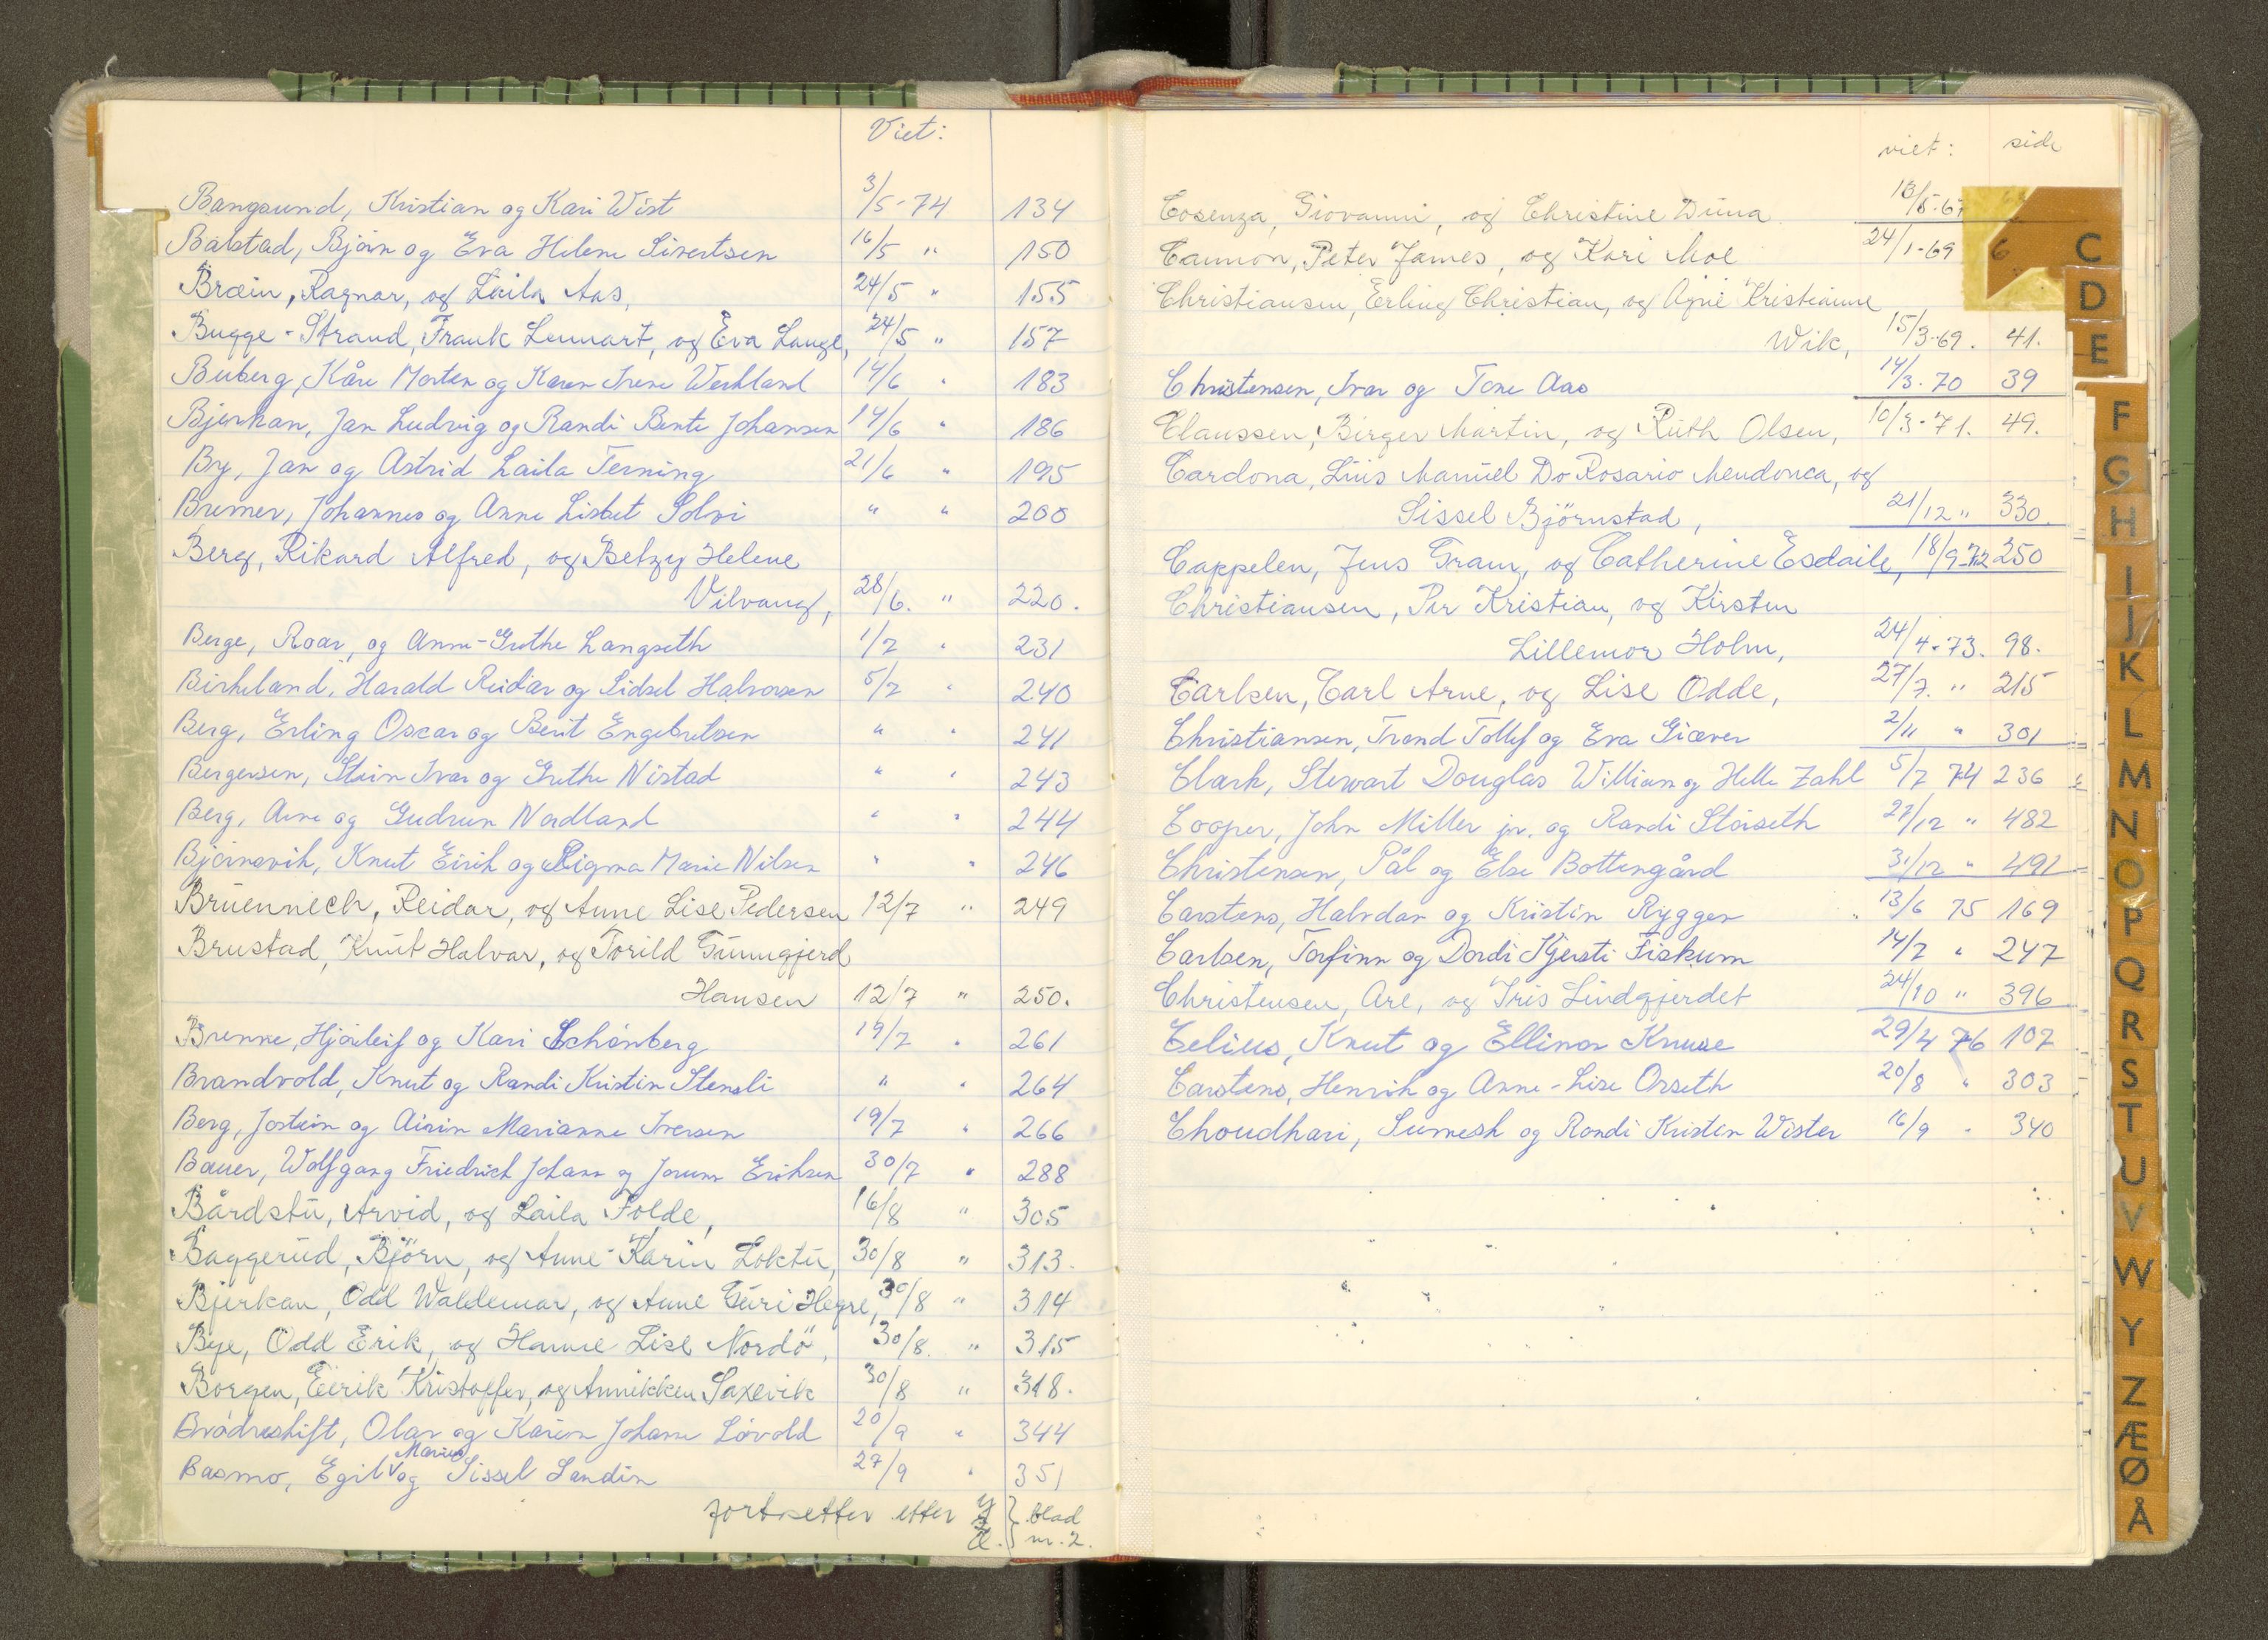 Viet:
Bangsund, Kristian og Kari Wist 3/5-74 134
Balstad, Björn og Eva Helene Sivertsen 16/5 " 150
Bræin, Ragnar, og Laila Aas, 24/5 " 155
Bugge-Strand, Frank Lennart, og Eva Lange, 24/5 " 157
Buberg, Kåre Morten og Karen Irene Werkland 14/6 " 183
Bjerkan, Jan Ludvig og Randi Bente Johansen 14/6 " 186
By, Jan og Astrid Laila Terning 21/6 " 195
Bremer, Johannes og Anne Lisbet Solvi " " 200
Berg, Rikard Alfred, og Betzy Helene
Vilvang, 28/6. " 220.
Berge, Roar, og Anne-Grethe Langseth 1/7 " 231
Birkeland, Harald Reidar og Sidsel Halvorsen 5/7 " 240
Berg, Erling Oscar og Berit Engebretsen " " 241
Bergersen, Stein Ivar og Grethe Nistad " " 243
Berg, Arne og Gudrun Nordland " " 244
Björnevik, Knut Eirik og Sigma Marie Nilsen " " 246
Brüennech, Reidar, og Anne Lise Pedersen 12/7 " 249
Brustad, Knut Halvar, og Torild Gunngjerd
Hansen 12/7 " 250.
Brenne, Hjörleif og Kari Schönberg 19/7 " 261
Brandvold, Knut og Randi Kristin Stensli " " 264
Berg, Jostein og Airin Marianne Iversen 19/7 " 266
Bauer, Wolfgang Friedrich Johann og Jorunn Eriksen 30/7 " 288
Bårdstu, Arvid, og Laila Folde, 16/8 " 305
Baggerud, Björn, og Anne-Karin Loktu, 30/8 " 313.
Bjerkan, Odd Waldemar, og Anne Guri Hegre, 30/8 " 314
Bye, Odd Erik, og Hanne Lise Nordö, 30/8. " 315
Borgen, Eirik Kristoffer, og Annikken Saxevik 30/8 " 318.
Brödreskift, Olav og Karen Johanne Lövold 20/9 " 344
Marius
Basmo, Egil og Sissel Sandin 27/9 " 351
fortsetter etter Y Z Æ. } blad nr. 2.
viet: side
Cosenza, Giovanni, og Christine Duna 13/5-67
Cannon, Peter James, og Kari Moe 24/1-69 6
Christiansen, Erling Christian, og Agni Kristianne
Wik, 15/3-69. 41.
Christensen, Ivar og Tone Aas 14/3-70 39
Claussen, Birger Martin, og Ruth Olsen, 10/3-71. 49.
Cardona, Luis Manuel Do Rosario Mendonca, og
Sissel Björnstad, 21/12 " 330.
Cappelen, Jens Gram, og Catherine Esdaile, 18/9-72 250
Christiansen, Per Kristian, og Kirsten
Lillemor Holm, 24/4-73. 98.
Carlsen, Carl Arne, og Lise Odde, 27/7. " 215
Christiansen, Trond Tollef og Eva Giæver 2/11 " 301
Clark, Stewart Douglas William og Helle Zahl 5/7 74 236
Cooper, John Miller jr. og Randi Störseth 27/12 " 482
Christensen, Pål og Else Bottengård 31/12 " 491
Carstens, Halvdan og Kristin Rygger 13/6 75 169
Carlsen, Torfinn og Dordi Kjersti Fiskum 14/7 " 247
Christensen, Are, og Iris Lindgjerdet 24/10 " 396
Celius, Knut og Ellinor Knuse 29/4 76 107
Carstens, Henrik og Anne-Lise Orseth 20/8 " 303
Choudhari, Sumesh og Randi Kristin Wister 16/9 " 340
C
D
E
F
G
H
I
J
K
L
M
N
O
P
Q
R
S
T
U
V
W
Y
Z
Æ
Ø
Å